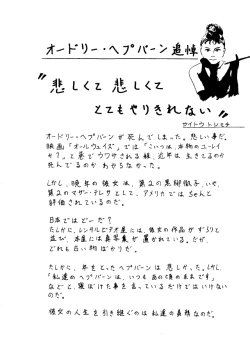 オードリー・ヘプバーン追悼
〝悲しくて 悲しくて
とてもやりきれない〟
サイトウ トシミチ
オードリー・ヘプバーンが死んでしまった。悲しい事だ。
映画「オールウェイズ」では「こいつは、本物のユーレイ
か？」と巷でウワサされる程、近年は生きてるのか
死んでるのかわからなかった。
しかし、晩年の彼女は、第2の黒柳徹子、いや、
第2のマザー・テレサとして、アメリカでは
評価されているのだ。
日本ではどーだ？
たしかに、レンタルビデオ屋には、彼女の作品がずらりと
並び、本屋には写真集が置かれている。だが、
どれも古い物ばかりだ。
たしかに、年をとったヘプバーンは悲しかった。しかし、
「私達のヘプバーンは、いつもあの頃のままです」
などと、寝ぼけた事を言っているだけではいけない
のだ。
彼女の人生を引き継ぐのは私達の責務なのだ。